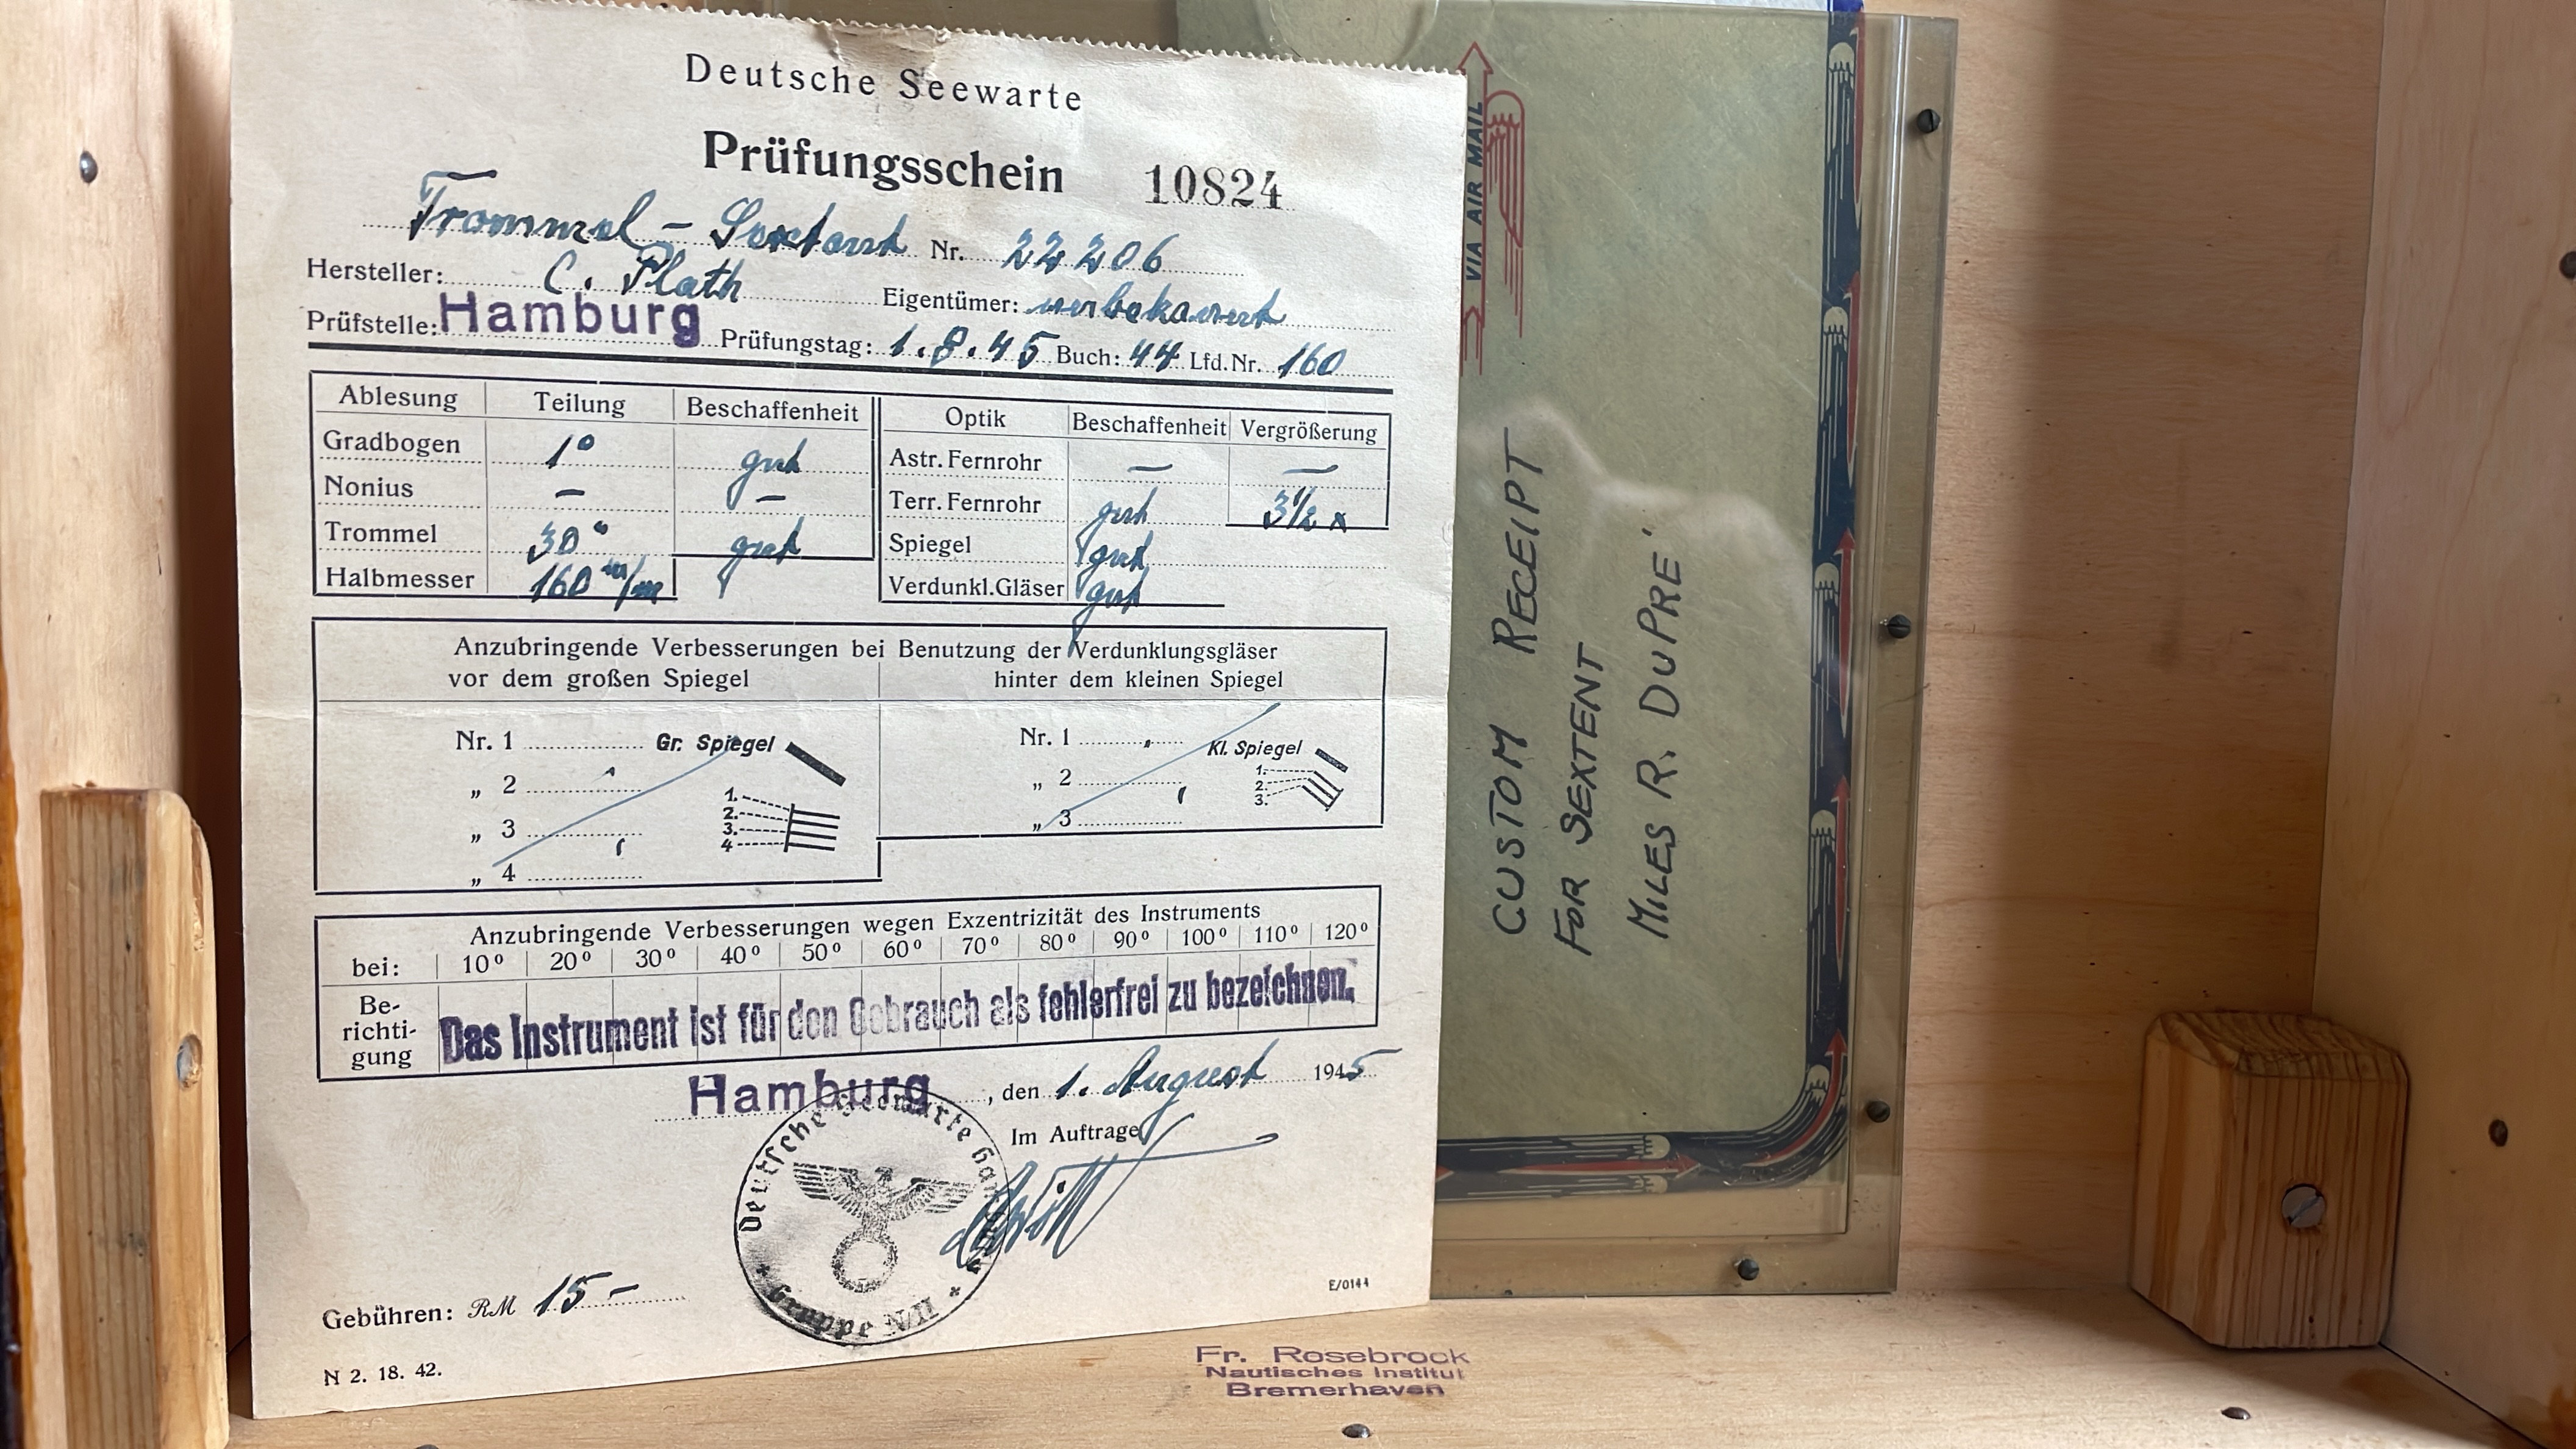 Deutsche Seewarte
Prüfungsschein 10824
Trommel - Sextant Nr. 22206
Hersteller: C. Plath Eigentümer: unbekannt
Prüfstelle: Hamburg Prüfungstag: 1.8.45 Buch: 44 Lfd.Nr. 160
Ablesung Teilung Beschaffenheit
Gradbogen 1° gut
Nonius — —
Trommel 30" gut
Halbmesser 160 m/m
Optik Beschaffenheit Vergrößerung
Astr. Fernrohr — —
Terr. Fernrohr gut 3½ x
Spiegel gut
Verdunkl.Gläser gut
Anzubringende Verbesserungen bei Benutzung der Verdunklungsgläser
vor dem großen Spiegel
Nr. 1 Gr. Spiegel
„ 2
„ 3
„ 4
1.
2.
3.
4.
hinter dem kleinen Spiegel
Nr. 1 Kl. Spiegel
„ 2
„ 3
1.
2.
3.
Anzubringende Verbesserungen wegen Exzentrizität des Instruments
bei: 10° 20° 30° 40° 50° 60° 70° 80° 90° 100° 110° 120°
Be-
richti-
gung
Das Instrument ist für den Gebrauch als fehlerfrei zu bezeichnen.
Hamburg, den 1. August 1945
Im Auftrage
Deutsche Seewarte
Gruppe
Gebühren: RM 15 -
E/0144
N 2. 18. 42.
VIA AIR MAIL
CUSTOM RECEIPT
FOR SEXTENT
MILES R. DUPRE'
Fr. Rosebrock
Nautisches Institut
Bremerhaven